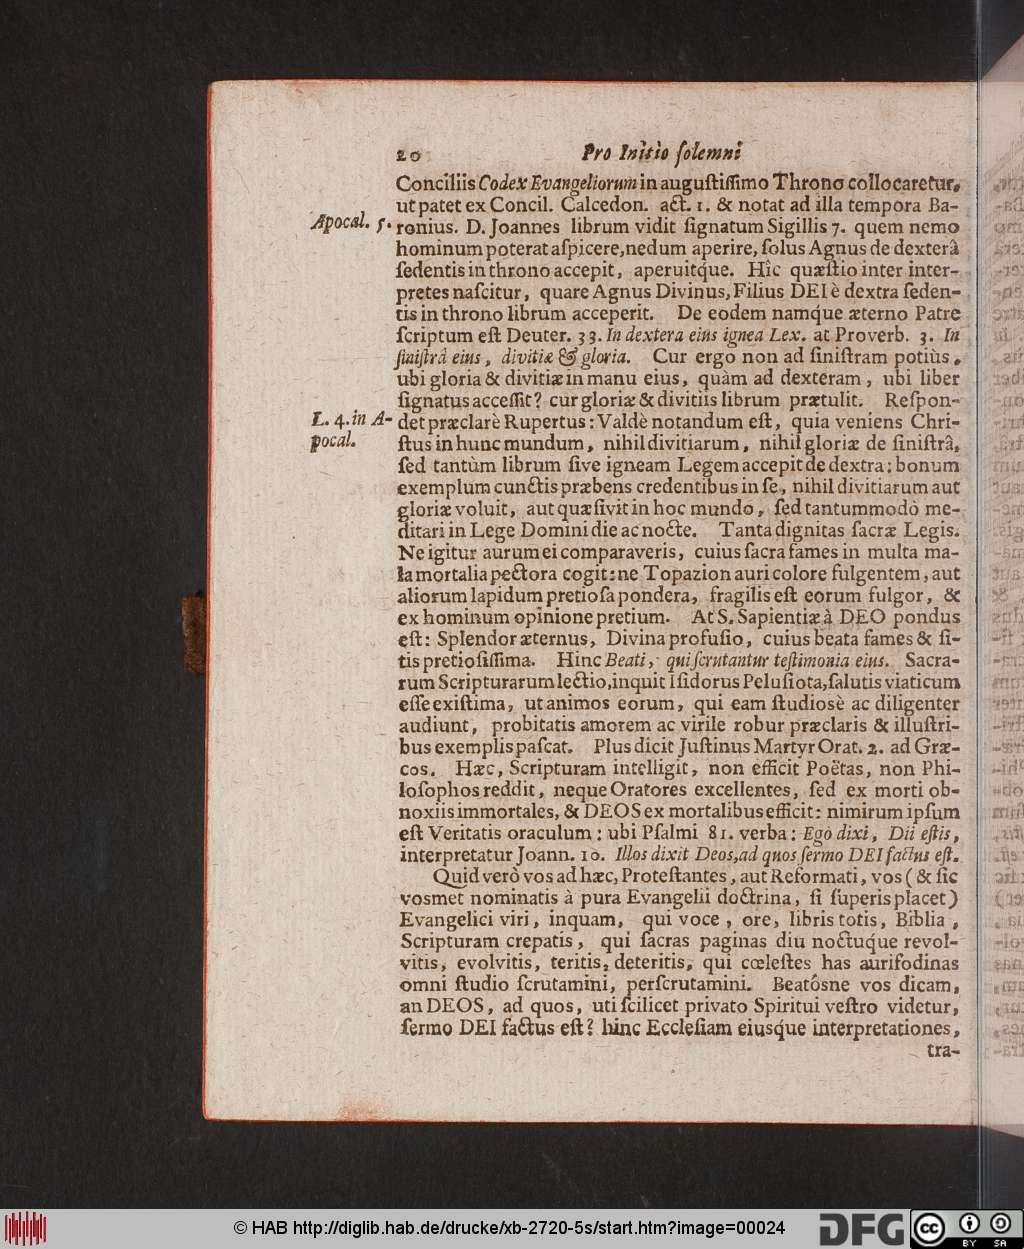 20 Pro Initio ſolemni
Conciliis Codex Evangeliorum in auguſtiſſimo Throno collocaretur,
ut patet ex Concil. Calcedon. act. 1. & notat ad illa tempora Ba-
Apocal. 5. ronius. D. Joannes librum vidit ſignatum Sigillis 7. quem nemo
hominum poterat aſpicere, nedum aperire, ſolus Agnus de dexterâ
ſedentis in throno accepit, aperuitq́ue. Hîc quæſtio inter inter-
pretes naſcitur, quare Agnus Divinus, Filius DEI è dextra ſeden-
tis in throno librum acceperit. De eodem namq́ue æterno Patre
ſcriptum eſt Deuter. 33. In dextera eius ignea Lex. at Proverb. 3. In
ſiniſtrâ eius, divitiæ & gloria. Cur ergo non ad ſiniſtram potiùs,
ubi gloria & divitiæ in manu eius, quàm ad dexteram, ubi liber
ſignatus acceſſit? cur gloriæ & divitiis librum prætulit. Reſpon-
L. 4. in A- det præclarè Rupertus: Valdè notandum eſt, quia veniens Chri-
pocal. ſtus in hunc mundum, nihil divitiarum, nihil gloriæ de ſiniſtrâ,
ſed tantùm librum ſive igneam Legem accepit de dextra: bonum
exemplum cunctis præbens credentibus in ſe, nihil divitiarum aut
gloriæ voluit, aut quæſivit in hoc mundo, ſed tantummodò me-
ditari in Lege Domini die ac nocte. Tanta dignitas ſacræ Legis.
Ne igitur aurum ei comparaveris, cuius ſacra fames in multa ma-
la mortalia pectora cogit: ne Topazion auri colore fulgentem, aut
aliorum lapidum pretioſa pondera, fragilis eſt eorum fulgor, &
ex hominum opinione pretium. At S. Sapientiæ à DEO pondus
eſt: Splendor æternus, Divina profuſio, cuius beata fames & ſi-
tis pretioſiſſima. Hinc Beati, qui ſcrutantur teſtimonia eius. Sacra-
rum Scripturarum lectio, inquit Iſidorus Peluſiota, ſalutis viaticum
eſſe exiſtima, ut animos eorum, qui eam ſtudiosè ac diligenter
audiunt, probitatis amorem ac virile robur præclaris & illuſtri-
bus exemplis paſcat. Plus dicit Juſtinus Martyr Orat. 2. ad Græ-
cos. Hæc, Scripturam intelligit, non efficit Poëtas, non Phi-
loſophos reddit, neque Oratores excellentes, ſed ex morti ob-
noxiis immortales, & DEOS ex mortalibus efficit: nimirum ipſum
eſt Veritatis oraculum: ubi Pſalmi 81. verba: Ego dixi, Dii eſtis,
interpretatur Joann. 10. Illos dixit Deos, ad quos ſermo DEI factus eſt.
Quid verò vos ad hæc, Proteſtantes, aut Reformati, vos (& ſic
vosmet nominatis à pura Evangelii doctrina, ſi ſuperis placet)
Evangelici viri, inquam, qui voce, ore, libris totis, Biblia,
Scripturam crepatis, qui ſacras paginas diu noctuq́ue revol-
vitis, evolvitis, teritis, deteritis, qui cœleſtes has aurifodinas
omni ſtudio ſcrutamini, perſcrutamini. Beatósne vos dicam,
an DEOS, ad quos, uti ſcilicet privato Spiritui veſtro videtur,
ſermo DEI factus eſt? hinc Eccleſiam eiusq́ue interpretationes,
tra-
© HAB http://diglib.hab.de/drucke/xb-2720-5s/start.htm?image=00024
DFG
cc BY SA